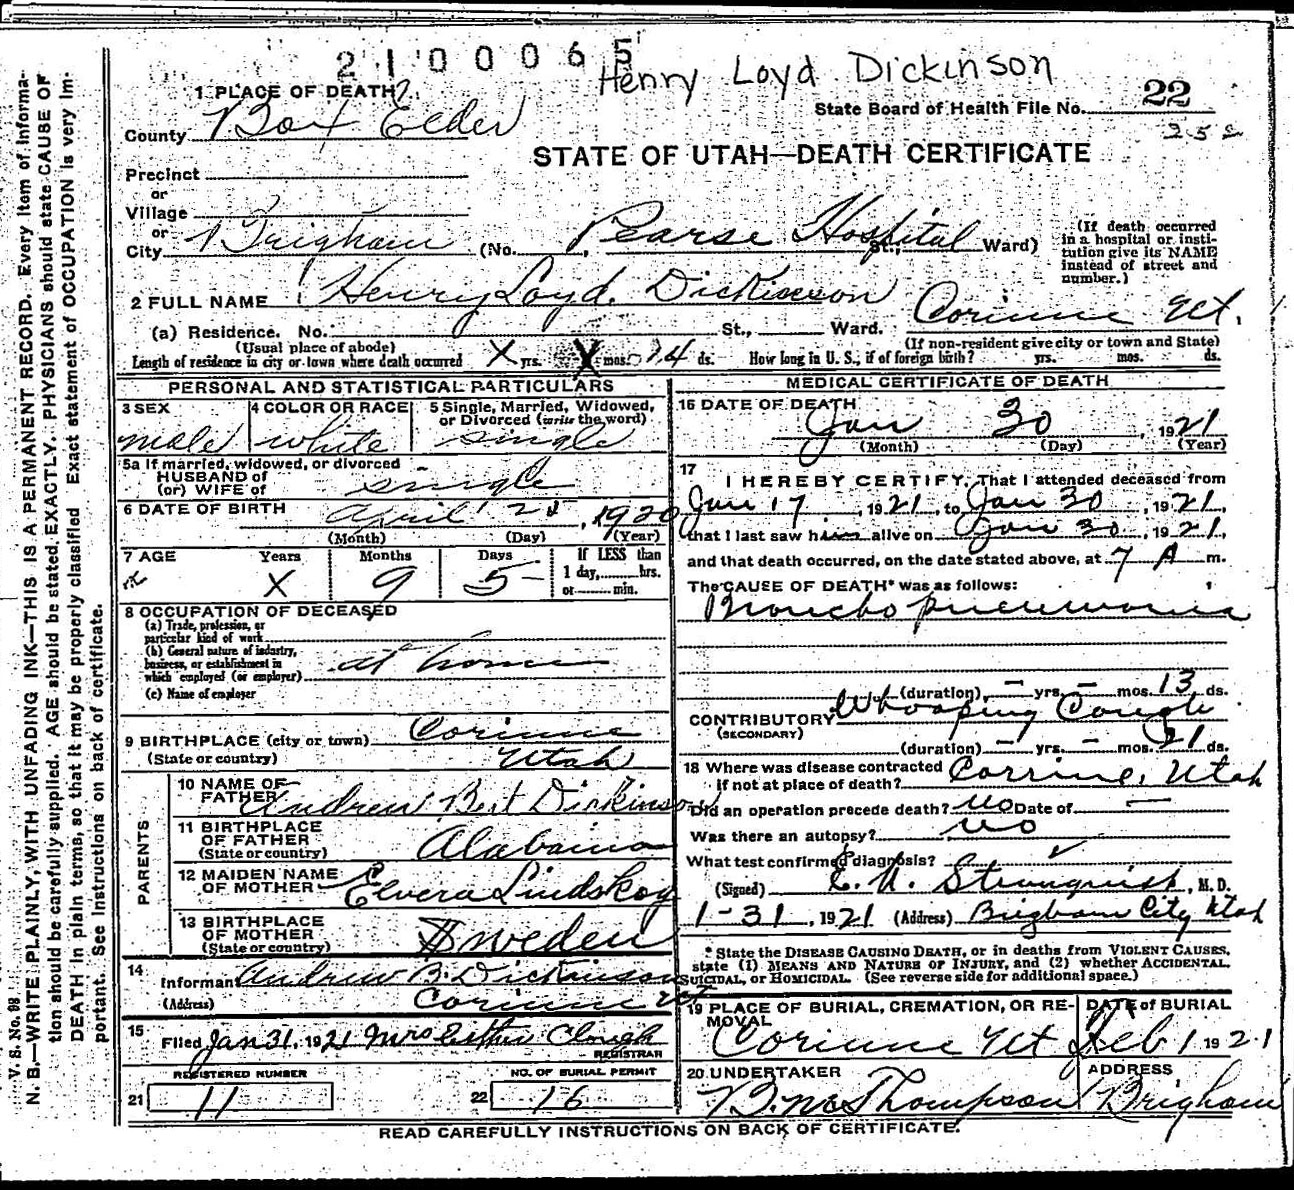 2100065
Henry Loyd Dickinson
1 PLACE OF DEATH
State Board of Health File No. 22
County Box Elder
STATE OF UTAH—DEATH CERTIFICATE
Precinct
or
Village
or
City Brigham (No. Pearse Hospital St., Ward)
(If death occurred in a hospital or institution give its NAME instead of street and number.)
2 FULL NAME Henry Loyd Dickinson
(a) Residence. No. St., Ward. Corinne Ut.
(Usual place of abode)
(If non-resident give city or town and State)
Length of residence in city or town where death occurred X yrs. X mos. 14 ds. How long in U. S., if of foreign birth? yrs. mos. ds.
PERSONAL AND STATISTICAL PARTICULARS
3 SEX
male
4 COLOR OR RACE
white
5 Single, Married, Widowed, or Divorced (write the word)
single
5a If married, widowed, or divorced
HUSBAND of
(or) WIFE of single
6 DATE OF BIRTH
April 25, 1920
(Month) (Day) (Year)
7 AGE Years Months Days If LESS than
1 day, hrs.
or min.
X 9 5
8 OCCUPATION OF DECEASED
(a) Trade, profession, or
particular kind of work
(b) General nature of industry,
business, or establishment in
which employed (or employer) at home
(c) Name of employer
9 BIRTHPLACE (city or town) Corinne
(State or country) Utah
PARENTS
10 NAME OF
FATHER Andrew Bert Dickinson
11 BIRTHPLACE
OF FATHER
(State or country) Alabama
12 MAIDEN NAME
OF MOTHER Elvera Lindskog
13 BIRTHPLACE
OF MOTHER
(State or country) Sweden
14
Informant Andrew B. Dickinson
(Address) Corinne Ut
15
Filed Jan 31, 1921 Mrs Esther Clough
REGISTRAR
REGISTERED NUMBER
21 11
NO. OF BURIAL PERMIT
22 16
MEDICAL CERTIFICATE OF DEATH
16 DATE OF DEATH
Jan 30, 1921
(Month) (Day) (Year)
17
I HEREBY CERTIFY, That I attended deceased from
Jan 17, 1921, to Jan 30, 1921,
that I last saw him alive on Jan 30, 1921,
and that death occurred, on the date stated above, at 7 A m.
The CAUSE OF DEATH* was as follows:
Broncho pneumonia
(duration) – yrs. – mos. 13 ds.
CONTRIBUTORY Whooping Cough
(SECONDARY)
(duration) – yrs. – mos. 21 ds.
18 Where was disease contracted
If not at place of death? Corrine, Utah
Did an operation precede death? no Date of —
Was there an autopsy? no
What test confirmed diagnosis?
(Signed) Strunquist, M. D.
1-31, 1921 (Address) Brigham City Utah
* State the DISEASE CAUSING DEATH, or in deaths from VIOLENT CAUSES,
state (1) MEANS AND NATURE OF INJURY, and (2) whether ACCIDENTAL,
SUICIDAL, OR HOMICIDAL. (See reverse side for additional space.)
19 PLACE OF BURIAL, CREMATION, OR REMOVAL
Corinne Ut
DATE of BURIAL
Feb 1 1921
20 UNDERTAKER
Thompson
ADDRESS
Brigham
READ CAREFULLY INSTRUCTIONS ON BACK OF CERTIFICATE.
V. S. No. 98
N. B.—WRITE PLAINLY, WITH UNFADING INK—THIS IS A PERMANENT RECORD. Every item of information
should be carefully supplied. AGE should be stated EXACTLY. PHYSICIANS should state CAUSE OF
DEATH in plain terms, so that it may be properly classified. Exact statement of OCCUPATION is very important.
See Instructions on back of certificate.